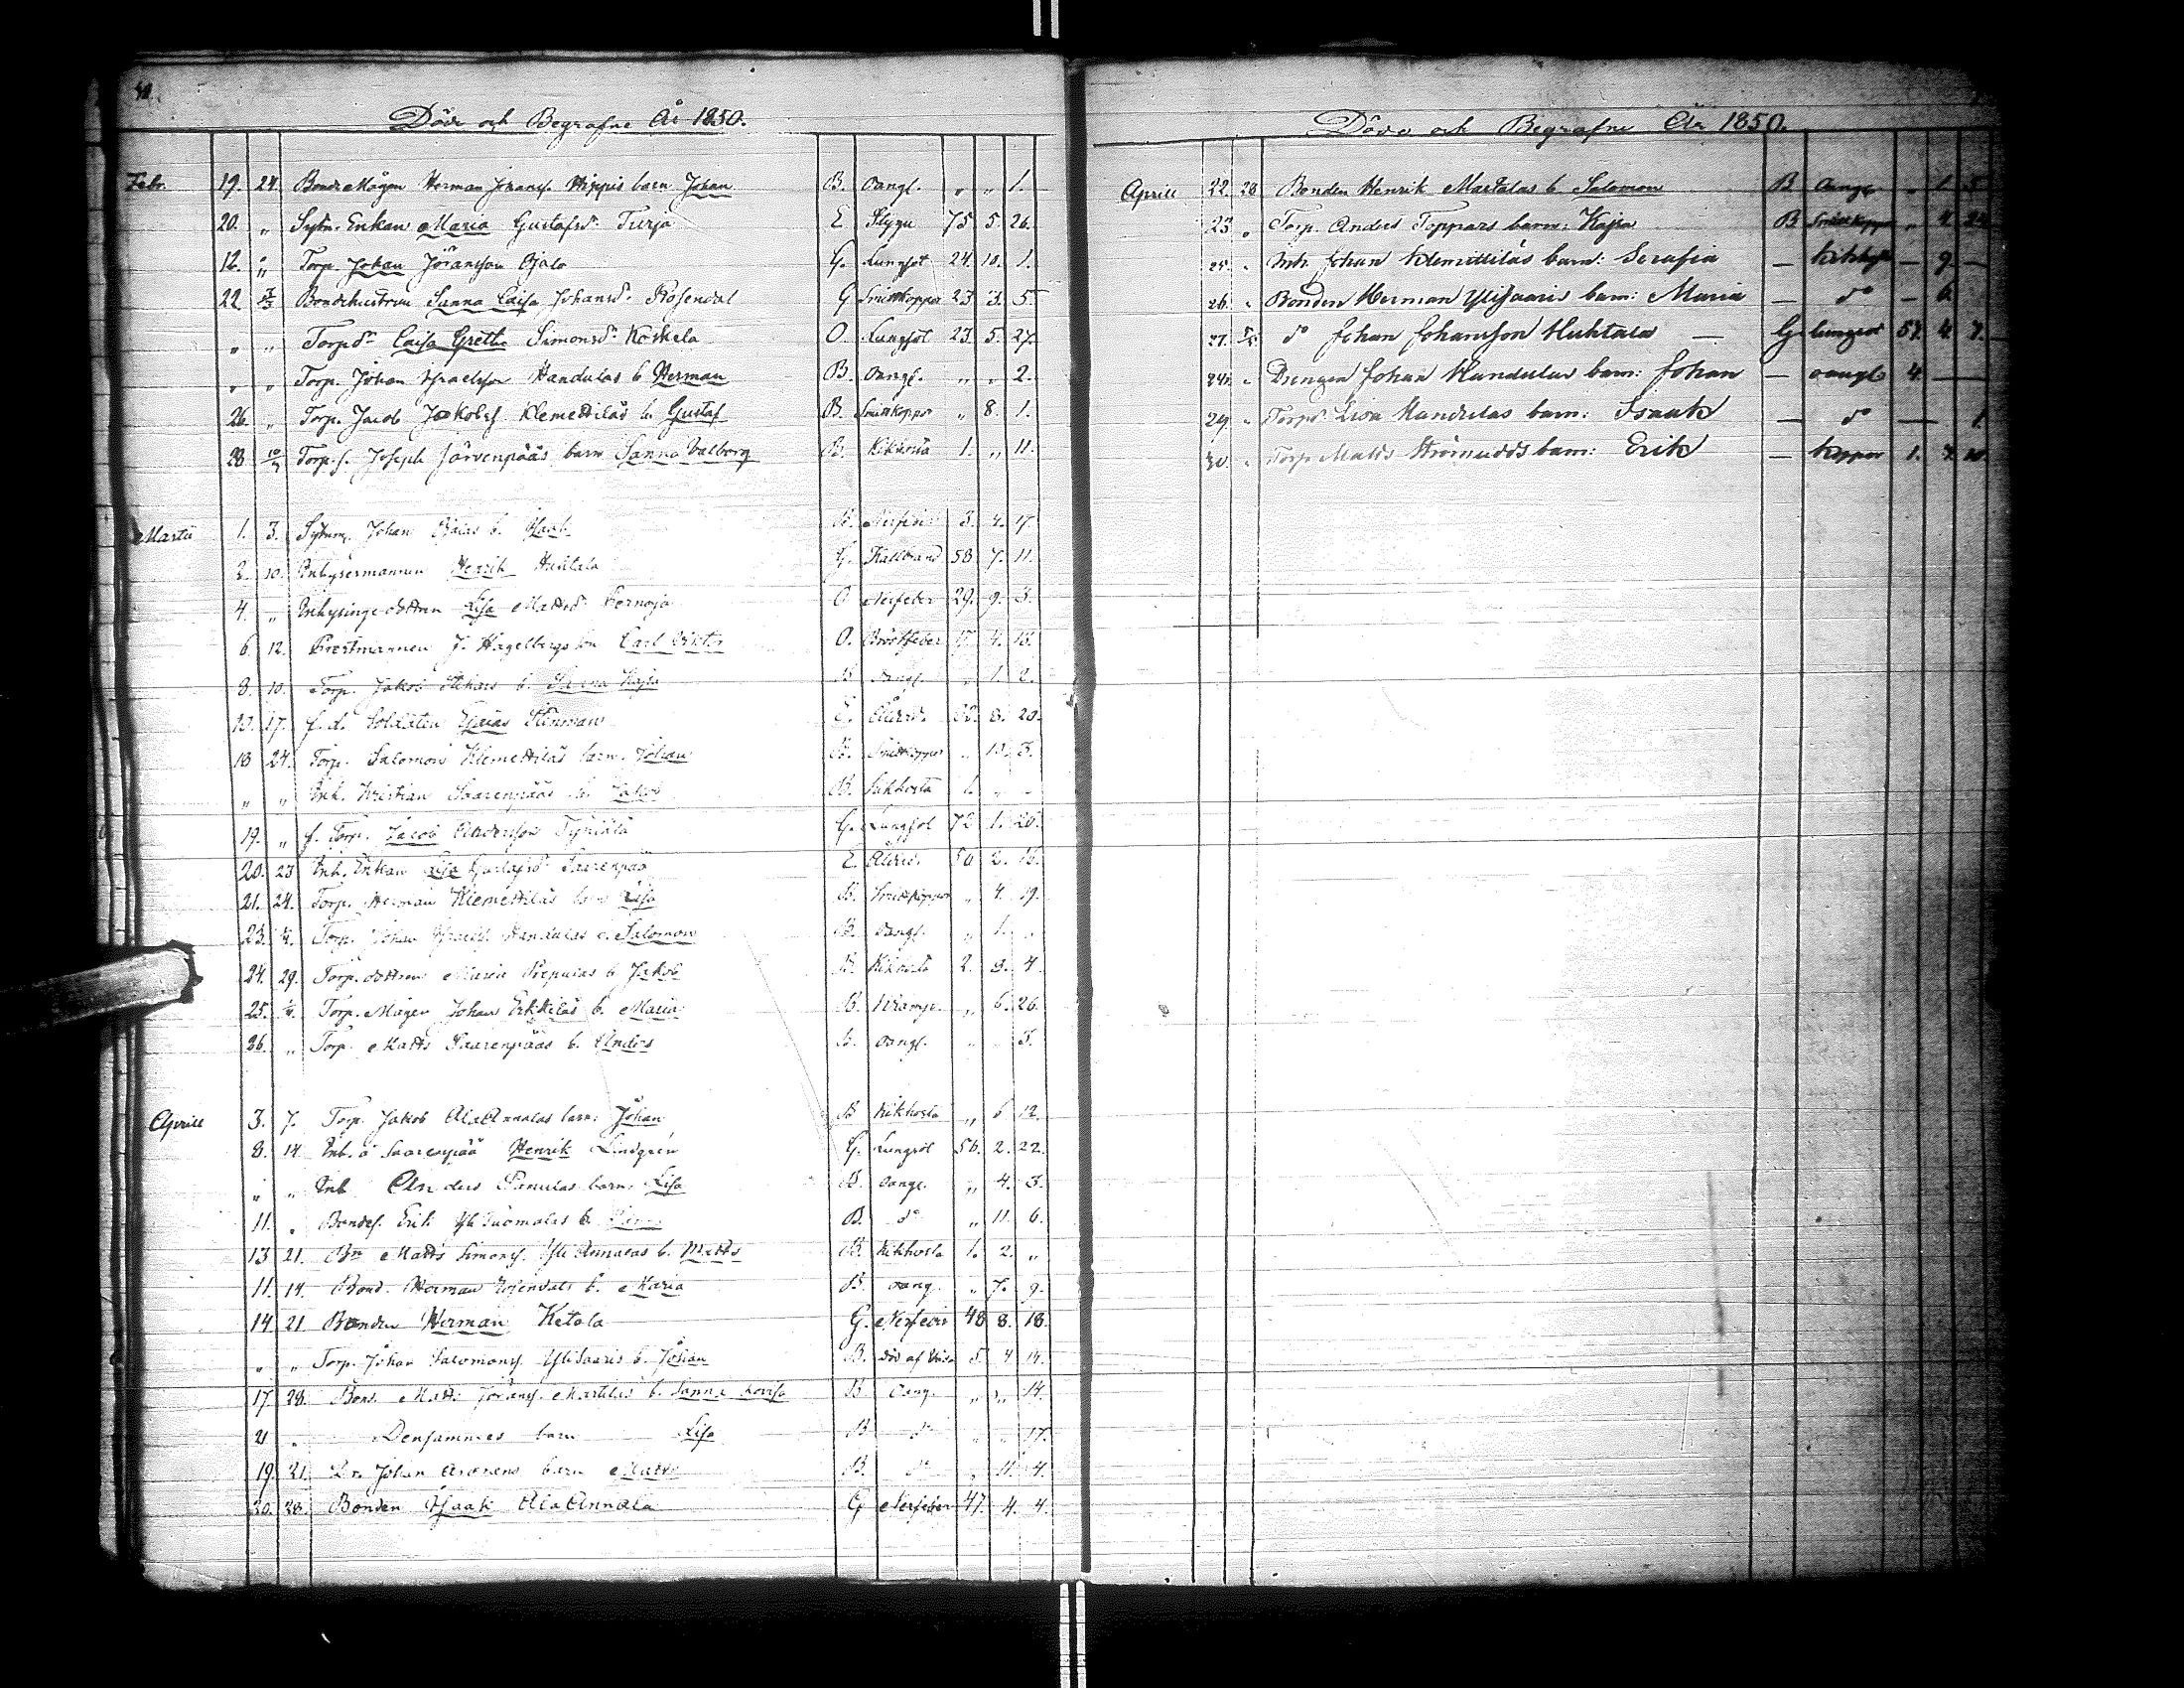 Döde och Begrafne År 1850.
Febr. 19. 24. Bonde Mågen Herman Johansf. Hippis barn Johan B. oangf. " " 1.
20. " Sytn. Enkan Maria Gustafsdr Turja E Slyyn 75 5. 26.
12. " Torp. Johan Jöransson Ojala G. Lungsot 24. 10. 1.
22. 3/3 Bondehustrun Sanna Caisa Johansdr Rosendal G Småttkoppor 23 3. 5.
" " Torpdr Caisa Greta Simonsdr Koskela O. Lungsot 23. 5. 27.
" " Torp. Johan Israelsson Handulas b Herman B. oangf. " " 2.
26. " Torp. Jacob Jakobsf. Klemettiläs b. Gustaf B. Småttkoppor " 8. 1.
28 10/3 Torp.s. Joseph Järvenpääs barn Sanna Valborg B. Kikhosta 1. " 11.
Martii 1. 3. Sytning. Johan Ojalas b. Isaak B. Nerffeber 3. 4. 17.
2. 10. Inhysesmannen Henrik Huhtala G. Kallbrand 58 7. 11.
4. " Inhysinge dottren Lisa Mattsdr Pernoja O Nerfeber 29. 9. 3.
6. 12. Prestmannen J. Hagelbergs son Carl Victor O. Bröstfeber 17. 4. 18.
8. 10. Torp. Jakob b. Kajsa B oangf. " 1. 2.
13. 17. f.d. Soldaten Esaias Stenman E. Ålderd. 8. 20.
18 24. Torp. Salomon Klemettiläs barn. Johan B. Småttkoppor " 3.
" " Inh. Kristian Saarenpääs b. Jakob B. Kikhosta 1. " "
19. " f. Torp. Jacob Andersson G. Lungsot 72 1. 26.
20. 23 Inh. Enkan Lisa Gustafsdr Saarenpää E. Ålderd. 56 2. 18.
21. 24. Torp. Herman Klemettiläs barn Lisa B. Småttkoppor " 4. 19.
23. Torp. Johan Israelsf. Handulas b. Salomon B. oangf. " 1. "
24. 29. Torp. dottren Maria b. Jakob B. Kikhosta 2. 9. 4.
25. Torp. Mågen Johan Erkkiläs b. Maria B. Kramp. " 6. 26.
26. " Torp. Matts Saarenpääs b. Anders B. oangf. " " 3.
Aprill 3. 7. Torp. Jakob AlaAnnalas barn: Johan B Kikhosta " 6 12.
8. 14 Inh. å Saarenpää Henrik Lindgren G. Lungsot 56. 2. 22.
" " Inh Anders Panulas barn. Lisa B. oangf. " 4. 3.
11. " Bondef. Erik YliTuomalas b. B. do " 11. 6.
13 21. Bn Matts Simonsf. YliAnnalas b. Matts B. Kikhosta 1. 2. "
11. 14. Bond. Herman Rosendals b. Maria B. oang. " 7. 9.
14. 21. Bonden Herman Ketola G. Nerfeber 48 8. 18.
" " Torp. Johan Salomonsf. YliSaaris b. Johan B. död af 5. 4 14.
17. 28. Bond. Matts Joransf. Martilas b. Sanna Lovisa B oang. " " 14.
21 " Densammes barn Lisa B do " " 17.
19. 21. Dr. Johan barn Matts B. do " 11. 4.
20. 28. Bonden Isaak AlaAnnala G Nerfeber 47. 4. 4.
Döde och Begrafne År 1850.
Aprill 22. 28 Bonden Henrik Martalas b Salomon B oangf " 1. 5
23 " Torp. Anders Toppars barn: Kajsa B Småttkoppor " 4. 24.
25. " Inh. Johan Klemettiläs barn: Serafia — kikhost — 9. —
26. " Bonden Herman YliSaaris barn: Maria — do — 6.
27. 5/5 do Johan Johansson Huhtala — G lungsot 57. 4. 7.
24. " Drengen Johan Handulas barn: Johan — oangf. 4. — —
29. " Torpdr Lisa Handulas barn: Isaak — do — 1.
30. " Torp. Matts Strömudds barn: Erik — koppor 1. 7. 10